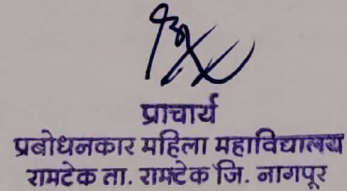 प्राचार्य
प्रबोधनकार महिला महाविद्यालय
रामटेक ता. रामटेक जि. नागपूर